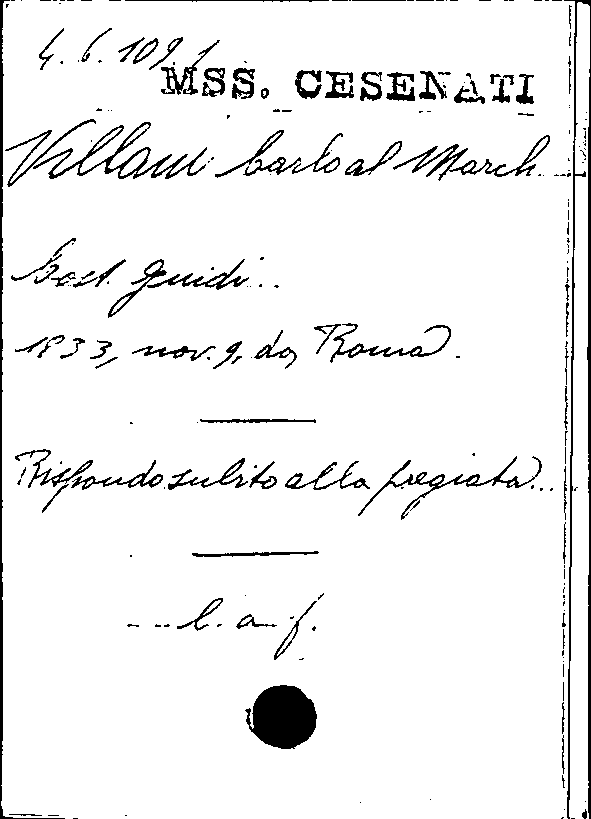 4.6.1091
MSS. CESENATI
Villani Carlo al March.
Cost. Guidi..
1833, nov. 9, da Roma.
Rispondo subito alla pregiata...
l. a f.